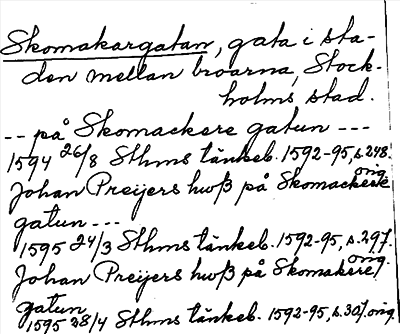 Skomakargatan, gata i sta-
den mellan broarna, Stock-
holms stad.
-- på Skomackere gatun ---
1594 26/8 Sthms tänkeb. 1592-95, s. 248.
orig.
Johan Preijers hwß på Skomackere
gatun ---
1595 24/3 Sthms tänkeb. 1592-95, s. 297.
orig.
Johan Preijers hwß på Skomakere/
gatun
1595 28/4 Sthms tänkeb. 1592-95, s. 307. orig.